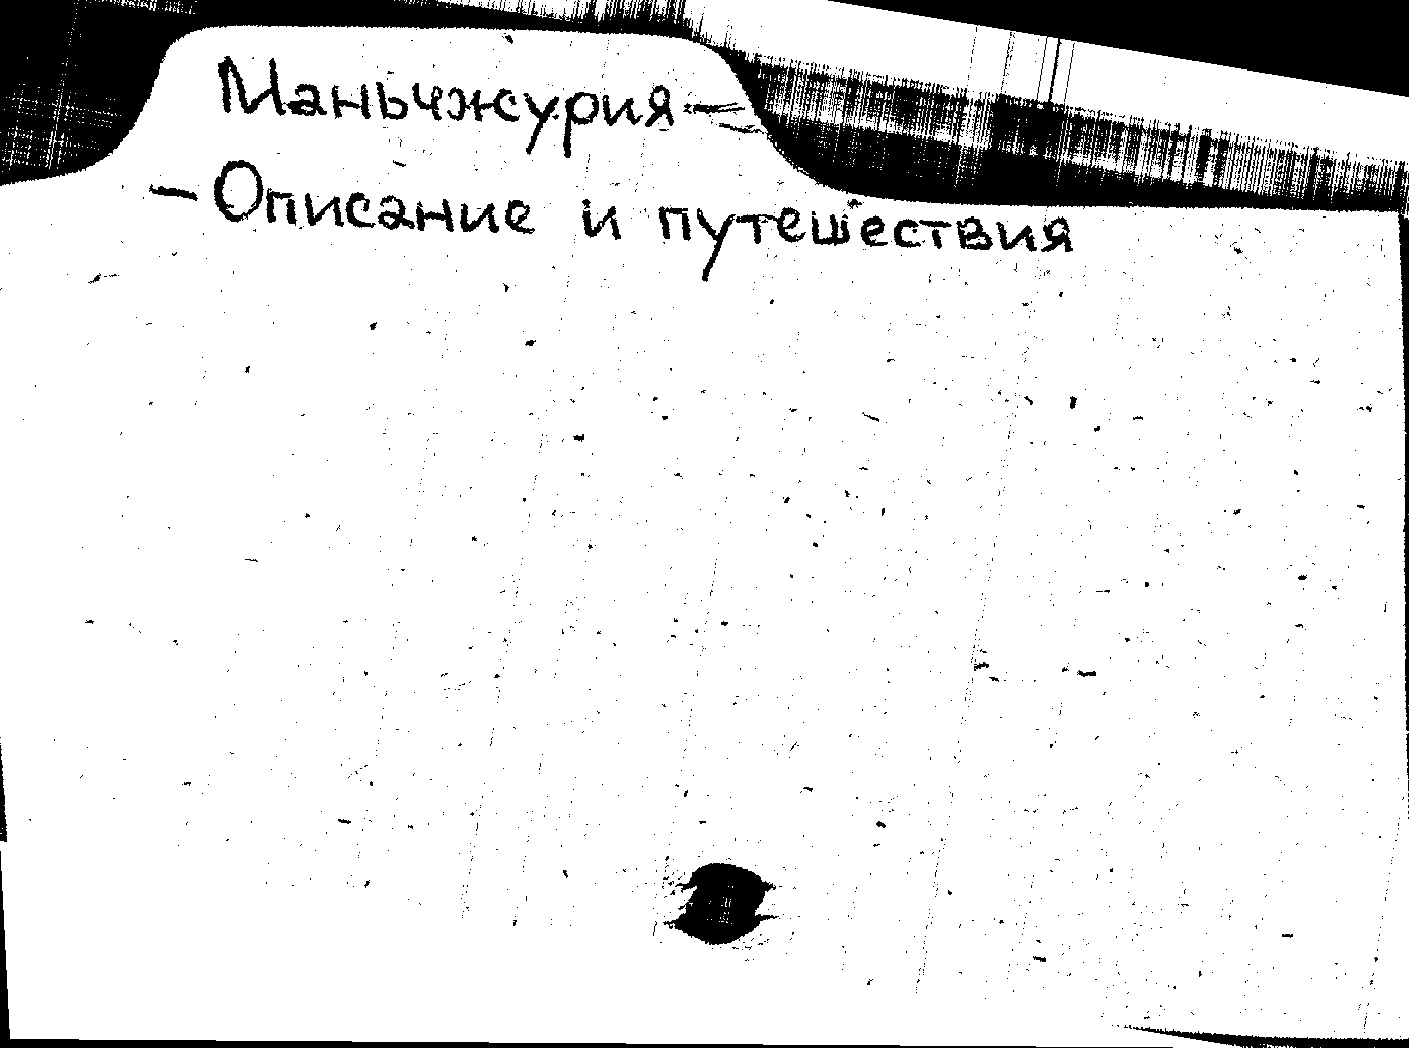 Маньчжурия —
— Описание и путешествия